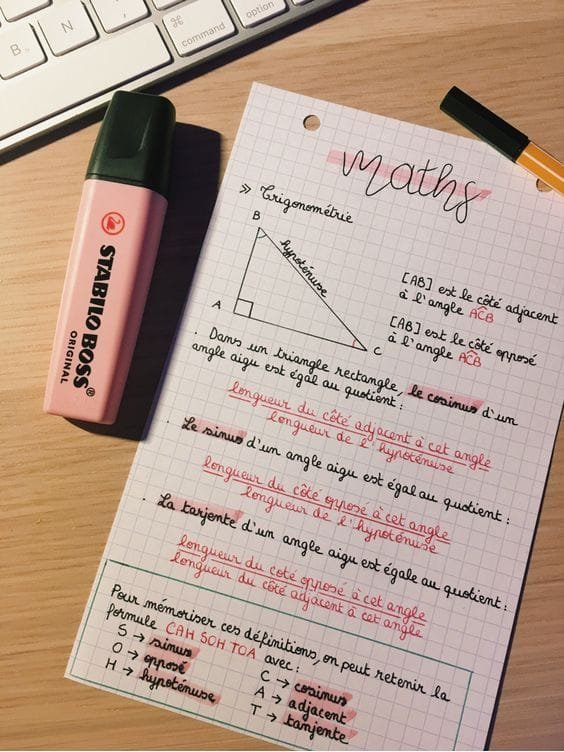 B
N
⌘
command
option
STABILO BOSS®
ORIGINAL
maths
>> Trigonométrie
B
hypoténuse
A
C
[AB] est le côté adjacent
à l'angle AĈB
[AB] est le côté opposé
à l'angle AĈB
. Dans un triangle rectangle, le cosinus d'un
angle aigu est égal au quotient :
longueur du côté adjacent à cet angle
longueur de l'hypoténuse
. Le sinus d'un angle aigu est égal au quotient :
longueur du côté opposé à cet angle
longueur de l'hypoténuse
. La tarjente d'un angle aigu est égale au quotient :
longueur du coté opposé à cet angle
longueur du côté adjacent à cet angle
Pour mémoriser ces définitions, on peut retenir la
formule CAH SOH TOA avec :
S → sinus
O → opposé
H → hypoténuse
C → cosinus
A → adjacent
T → tanjente